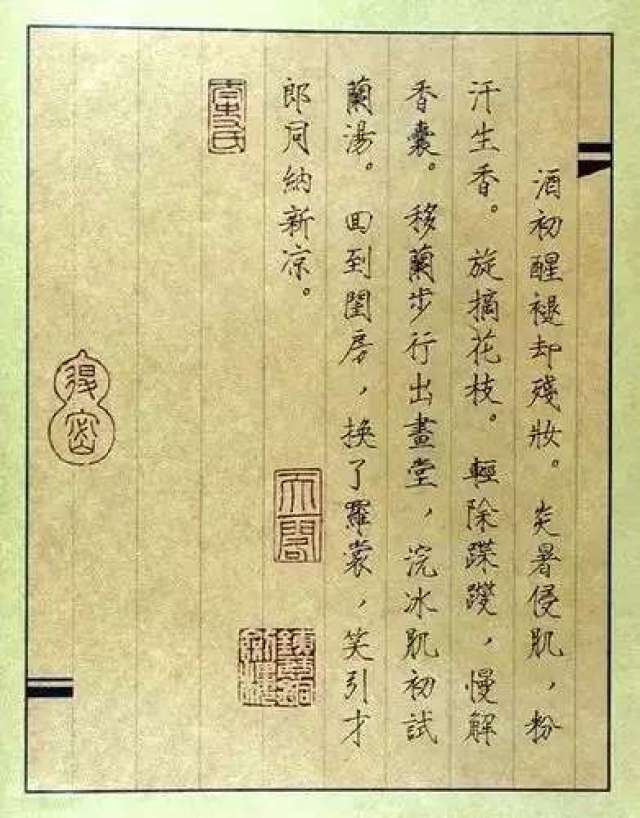 酒初醒褪却殘妝。炎暑侵肌，粉
汗生香。旋摘花枝。輕除蹀躞，慢解
香囊。移蘭步行出畫堂，浣冰肌初試
蘭湯。回到閨房，換了羅裳，笑引才
郎同納新凉。
天閣
得密